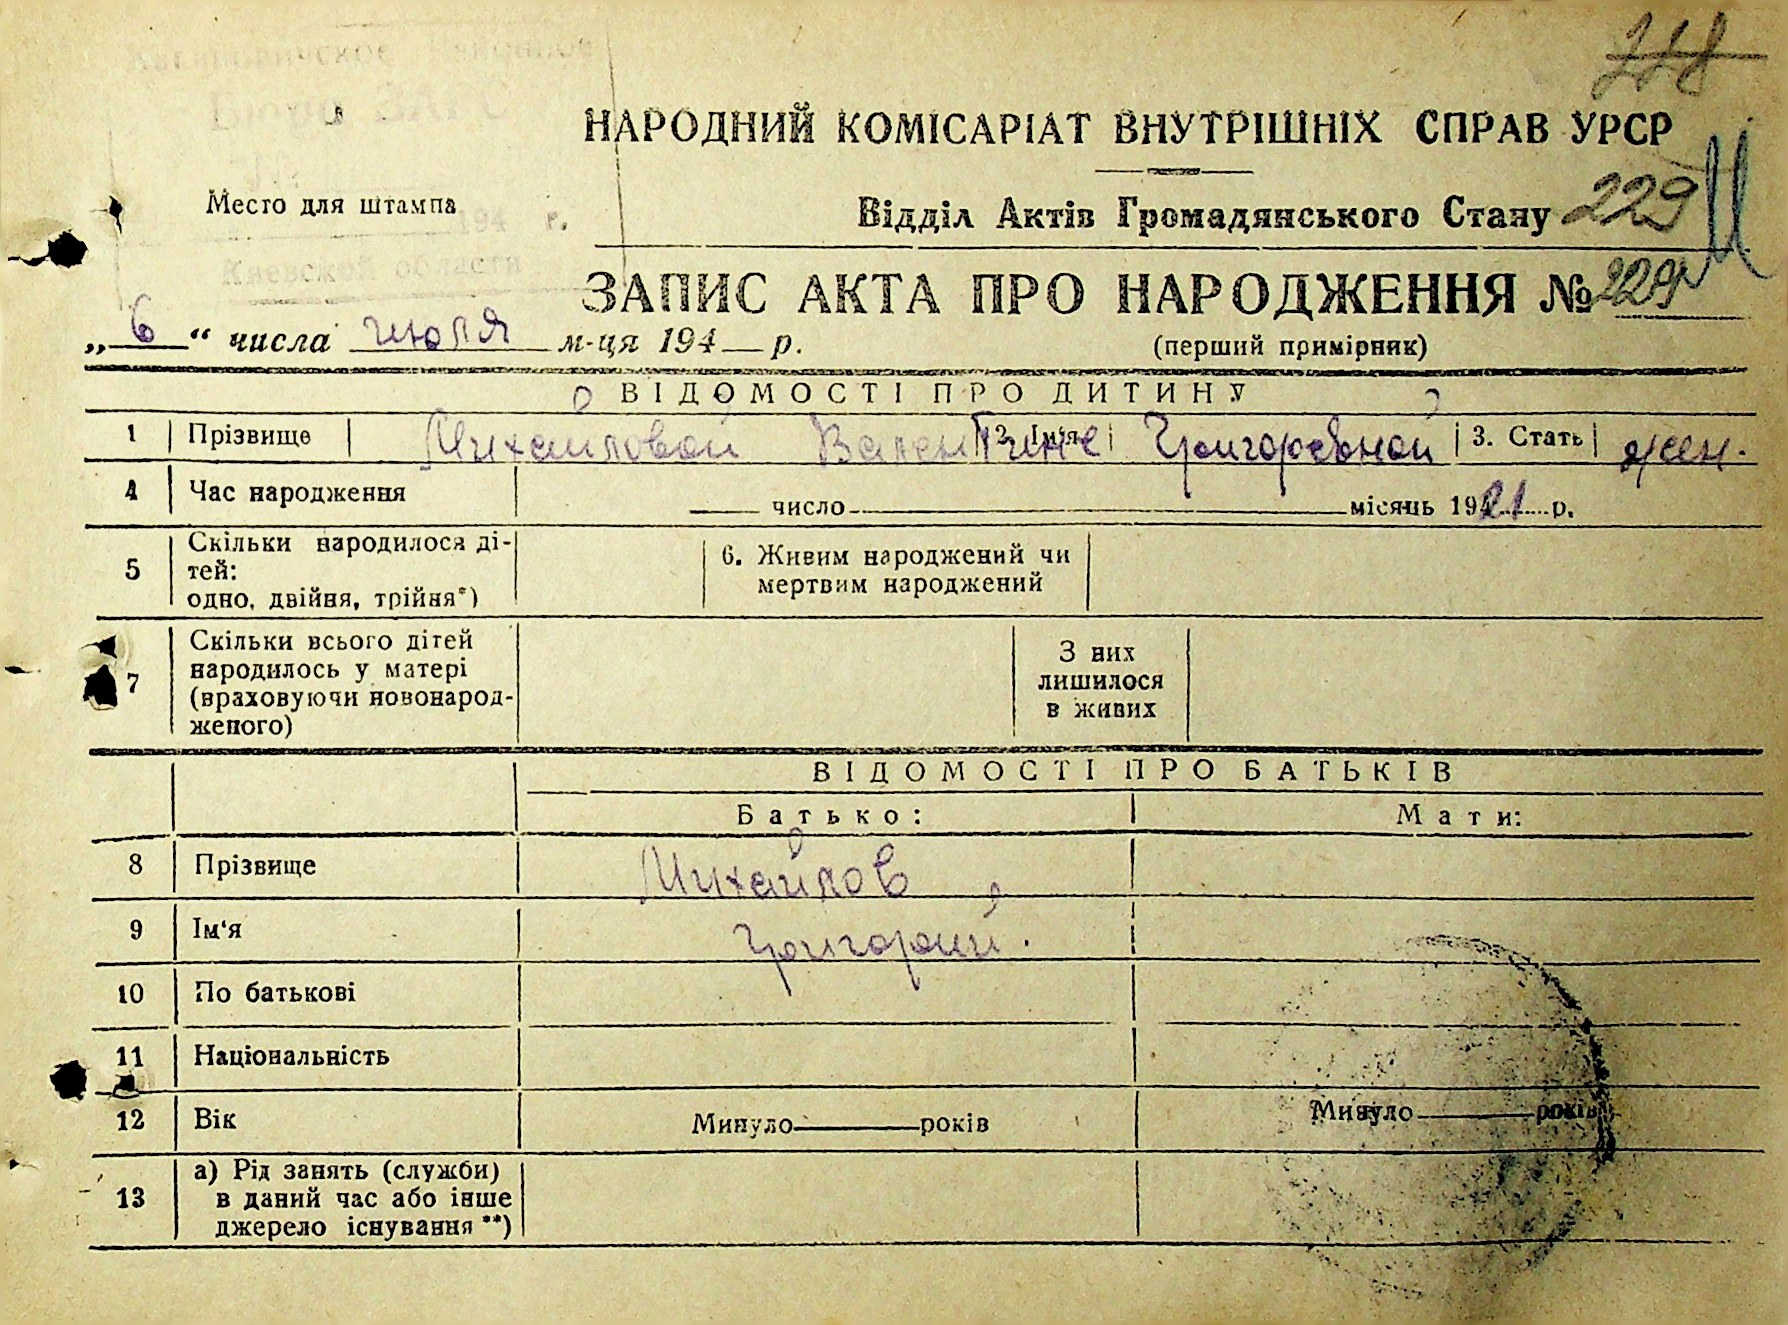 228
НАРОДНИЙ КОМІСАРІАТ ВНУТРІШНІХ СПРАВ УРСР
Бюро ЗАГС
Место для штампа
194 г.
Киевской области
Відділ Актів Громадянського Стану 229
ЗАПИС АКТА ПРО НАРОДЖЕННЯ № 229
„6“ числа июля м-ця 194 р.
(перший примірник)
ВІДОМОСТІ ПРО ДИТИНУ
1 Прізвище Михайловой Валентине 2. Ім'я Григорьевной 3. Стать жен.
4 Час народження число місяць 1921 р.
5 Скільки народилося ді-
тей:
одно, двійня, трійня*)
6. Живим народжений чи
мертвим народжений
7 Скільки всього дітей
народилось у матері
(враховуючи новонарод-
женого)
З них
лишилося
в живих
ВІДОМОСТІ ПРО БАТЬКІВ
Батько: Мати:
8 Прізвище Михайлов
9 Ім'я Григорий.
10 По батькові
11 Національність
12 Вік Минуло років Минуло років
13 а) Рід занять (служби)
в даний час або інше
джерело існування **)